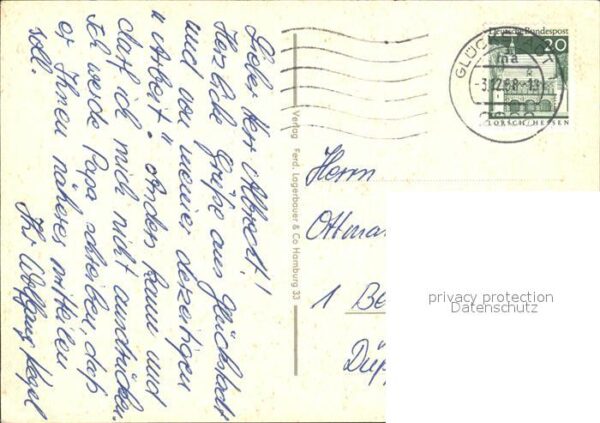 Lieber Herr Albrecht!
Herzliche Grüße aus Glückstadt
und von meiner derzeitigen
"Arbeit". Anders kann und
darf ich mich nicht ausdrücken.
Ich werde Papa schreiben, daß
er Ihnen näheres mitteilen
soll.
Ihr Wolfgang
Verlag Ferd. Lagerbauer & Co Hamburg 33
Deutsche Bundespost
20
LORSCH/HESSEN
-3.12.68-13
Herrn
1 Be
privacy protection
Datenschutz